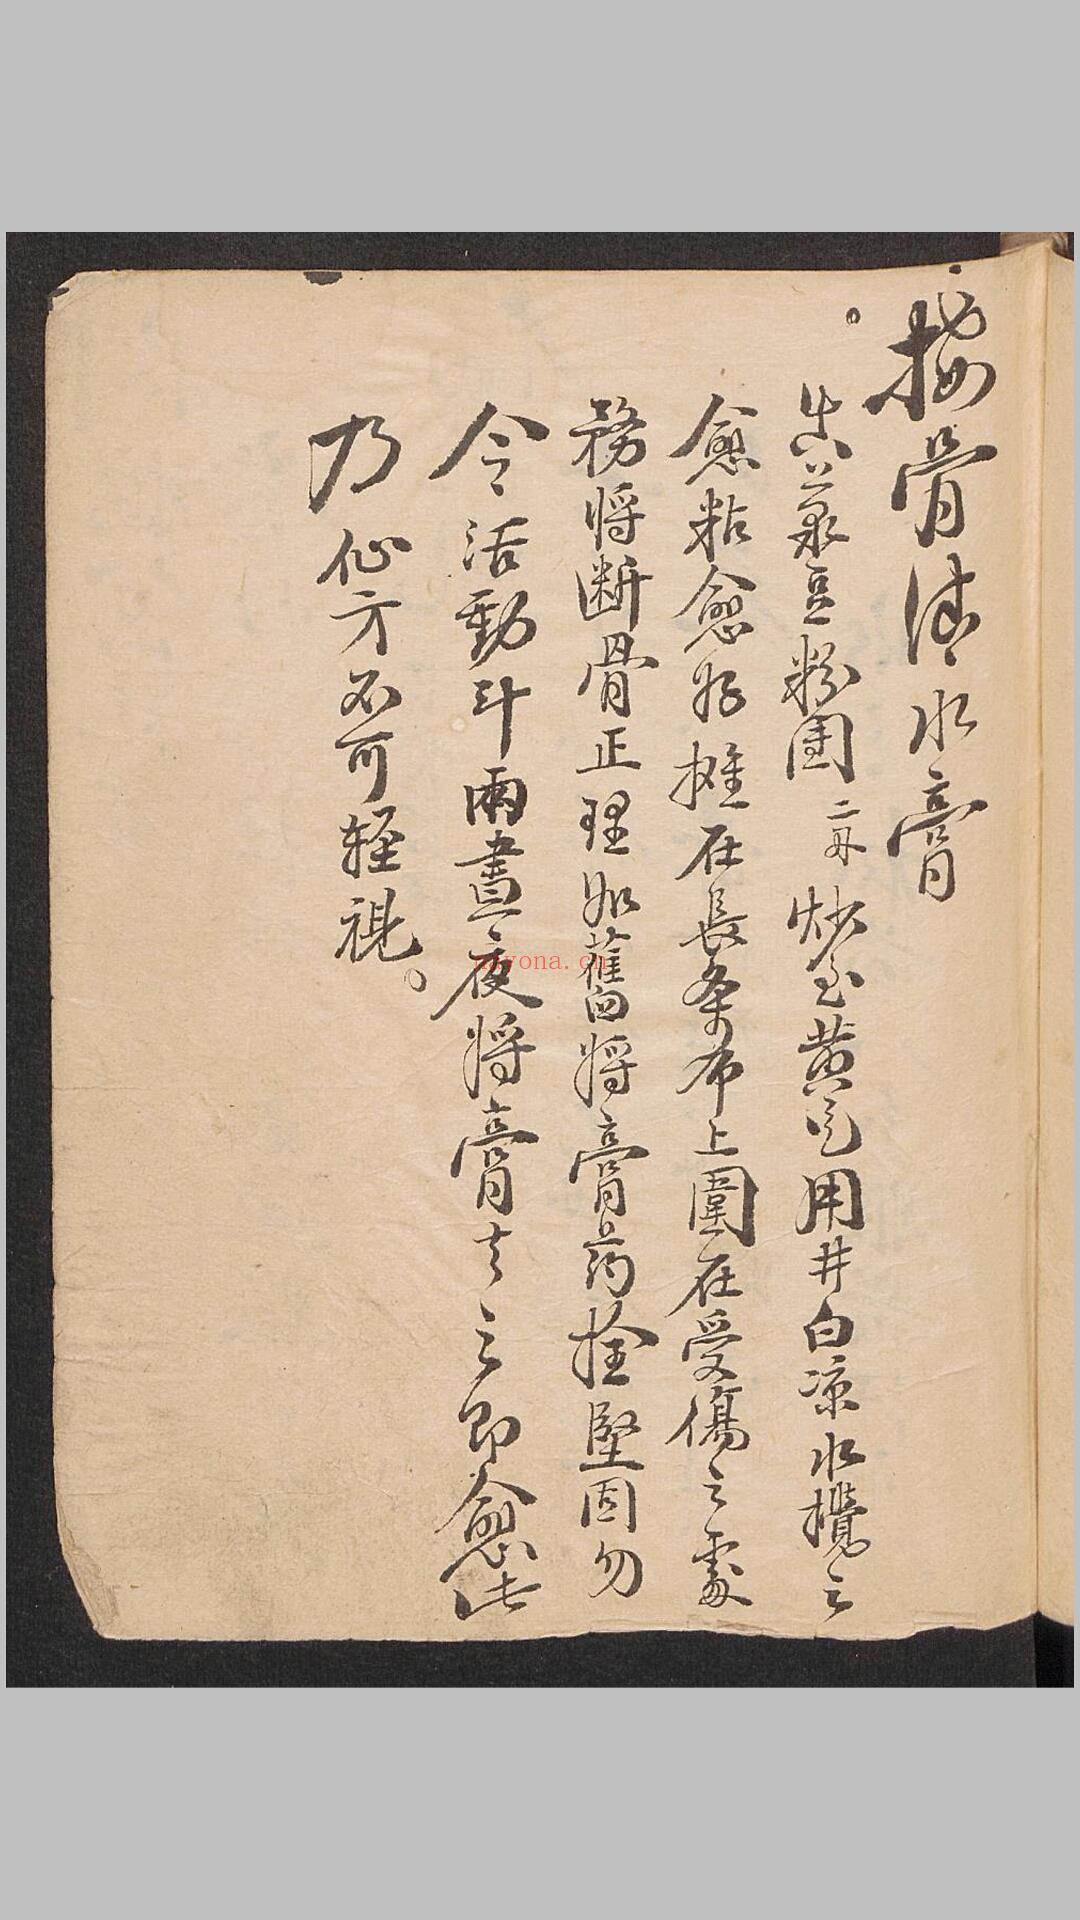 接骨清水膏
真菉豆粉團二两炒至黄色用井白凉水攪之
愈粘愈好攤在長条布上圍在受傷之處
務將断骨正理如舊將膏药拴堅固勿
令活動斗兩晝夜將膏去之即愈此
乃仙方不可轻視。
nayona.cn